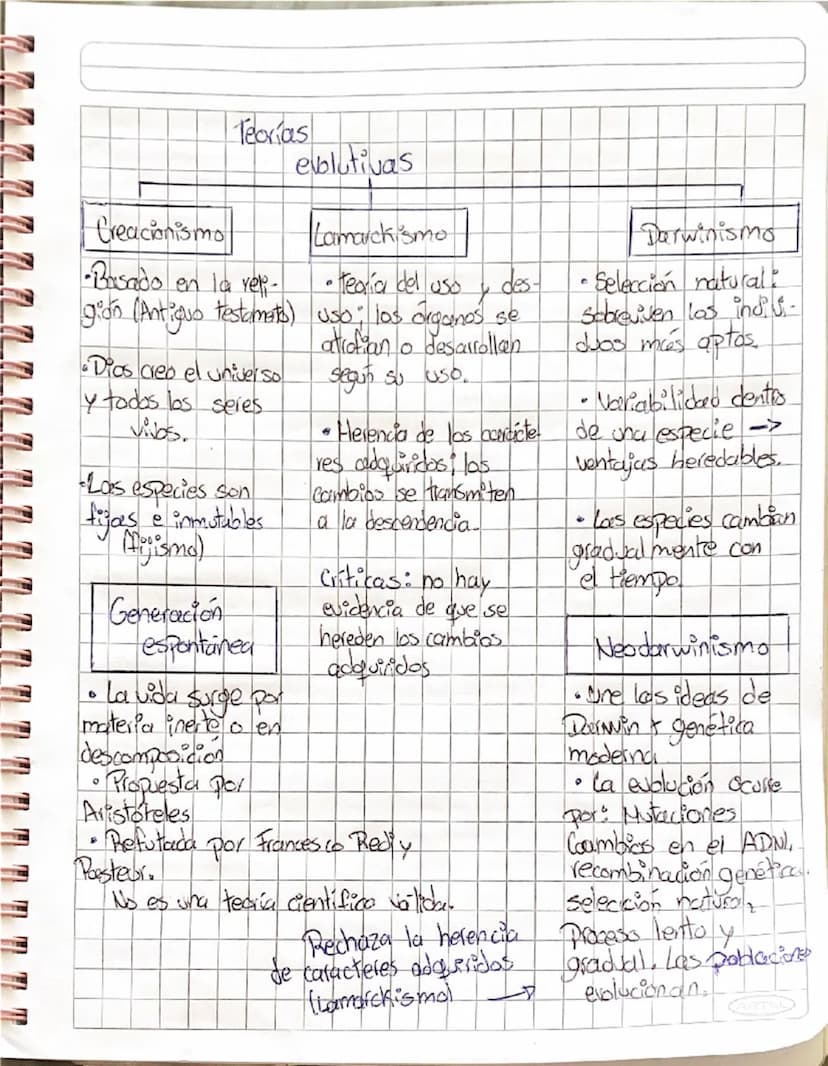 Teorías
evolutivas
Creacionismo
·Basado en la reli-
gión (Antiguo testamento)
·Dios creo el universo
y todos los seres
vivos.
·Las especies son
fijas e inmutables
(fijismo)
Generación
espontánea
• La vida surge por
materia inerte o en
descomposición
• Propuesta por
Aristóteles
• Refutada por Francesco Redi y
Pasteur.
No es una teoría científica válida.
Lamarckismo
• Teoría del uso y des-
uso; los órganos se
atrofian o desarrollan
según su uso.
• Herencia de los caracte-
res adquiridos; los
cambios se transmiten
a la descendencia.
Críticas: no hay
evidencia de que se
hereden los cambios
adquiridos
Darwinismo
• Selección natural:
sobreviven los indivi-
duos más aptos.
• Variabilidad dentro
de una especie →
ventajas heredables.
• Las especies cambian
gradualmente con
el tiempo.
Neodarwinismo
• Une las ideas de
Darwin + genética
moderna
• La evolución ocurre
por: Mutaciones
(cambios en el ADN),
recombinación genética,
selección natural,
Proceso lento y
gradual. Las poblaciones
evolucionan.
Rechaza la herencia
de caracteres adqueridos
(Lamarckismo) →